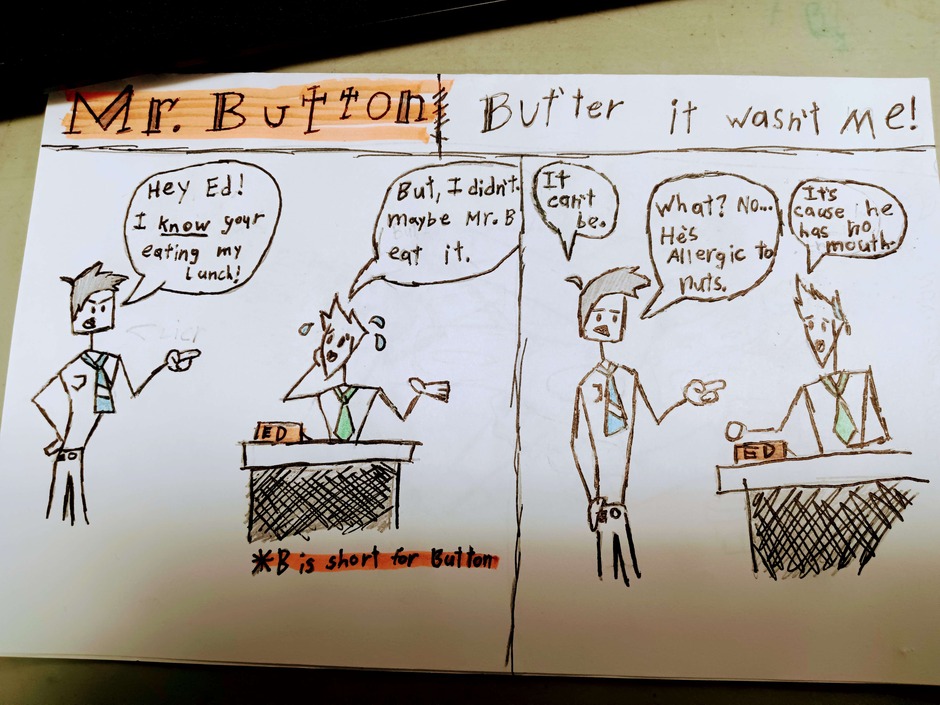 Mr. Button
Butter it wasn't me!
Hey Ed!
I know your
eating my
lunch!
But, I didn't.
maybe Mr. B
eat it.
ED
*B is short for Button
It
can't
be.
What? No...
He's
Allergic to
nuts.
It's
cause he
has no
mouth.
ED